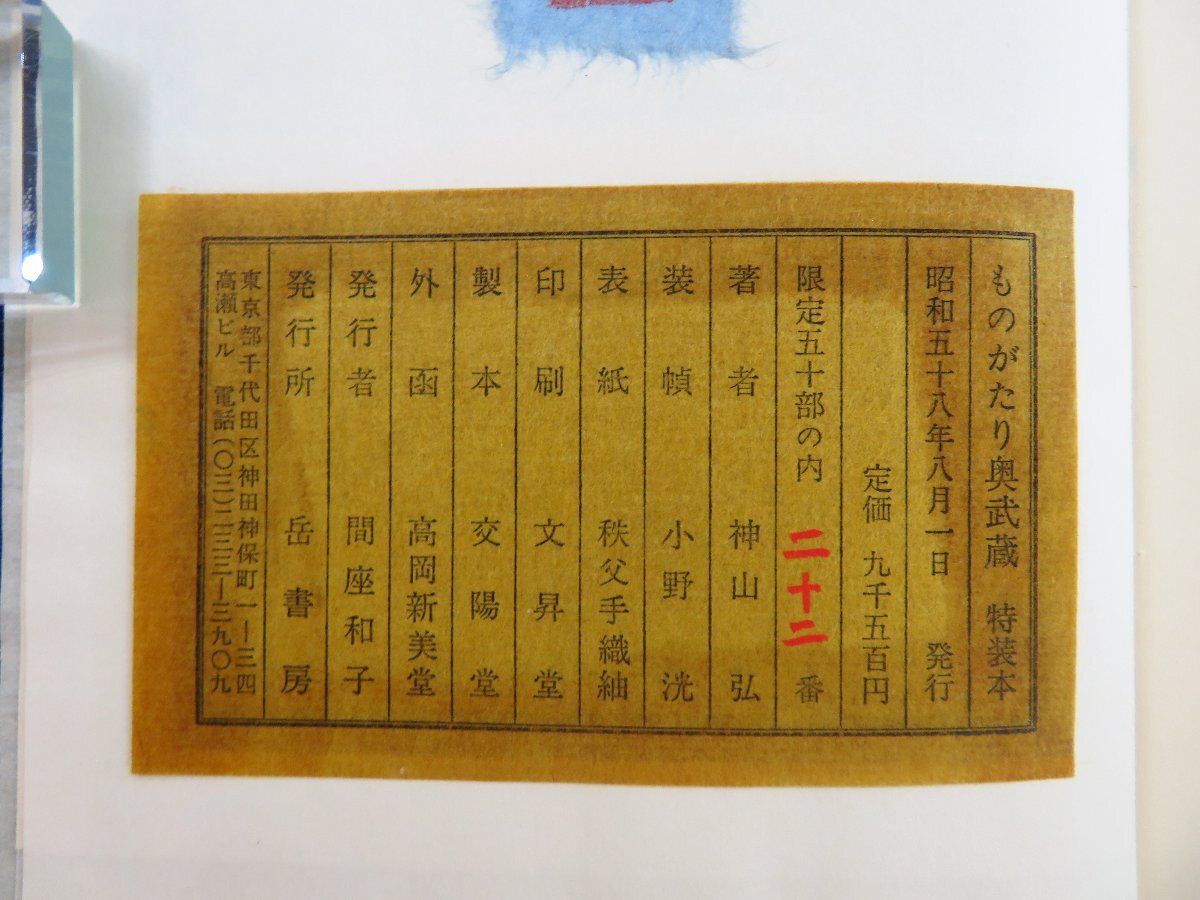 ものがたり奥武蔵　特装本
昭和五十八年八月一日　発行
定価　九千五百円
限定五十部の内　二十二　番
著者　神山　弘
装幀　小野　洸
表紙　秩父手織紬
印刷　文昇堂
製本　交陽堂
外函　高岡新美堂
発行者　間座和子
発行所　岳書房
東京都千代田区神田神保町一―三四
高瀬ビル　電話(〇三)二三三―三九〇九